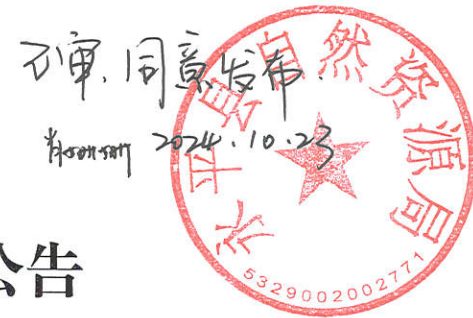 同意发布.
2024.10.23
永平县自然资源局
5329002002771
公告